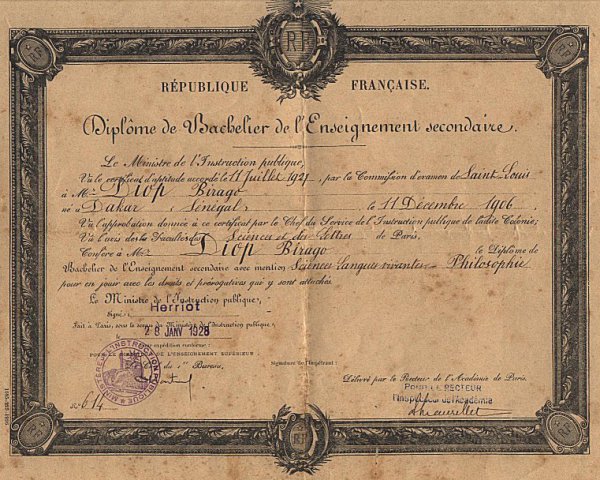 RF
RÉPUBLIQUE FRANÇAISE.
Diplôme de Bachelier de l'Enseignement secondaire.
Le Ministre de l'Instruction publique,
Vu le certificat d'aptitude accordé le 11 Juillet 1927, par la Commission d'examen de Saint Louis
à Mr Diop Birago
né à Dakar, Sénégal, le 11 Décembre 1906,
Vu l'approbation donnée à ce certificat par le Chef du Service de l'Instruction publique de ladite Colonie;
Vu l'avis de la Faculté des Sciences et des Lettres de Paris,
Confère à Mr Diop Birago le Diplôme de
Bachelier de l'Enseignement secondaire avec mention Sciences Langues vivantes - Philosophie
pour en jouir avec les droits et prérogatives qui y sont attachés.
Le Ministre de l'Instruction publique,
Signé: Herriot
Fait à Paris, sous le sceau du Ministère de l'Instruction publique,
28 JANV 1928
Pour expédition conforme:
DE L'ENSEIGNEMENT SUPÉRIEUR
du 1er Bureau,
Signature de l'Impétrant:
MINISTÈRE INSTRUCTION PUBLIQUE
Délivré par le Recteur de l'Académie de Paris.
POUR LE RECTEUR
l'Inspecteur de l'Académie
No 614